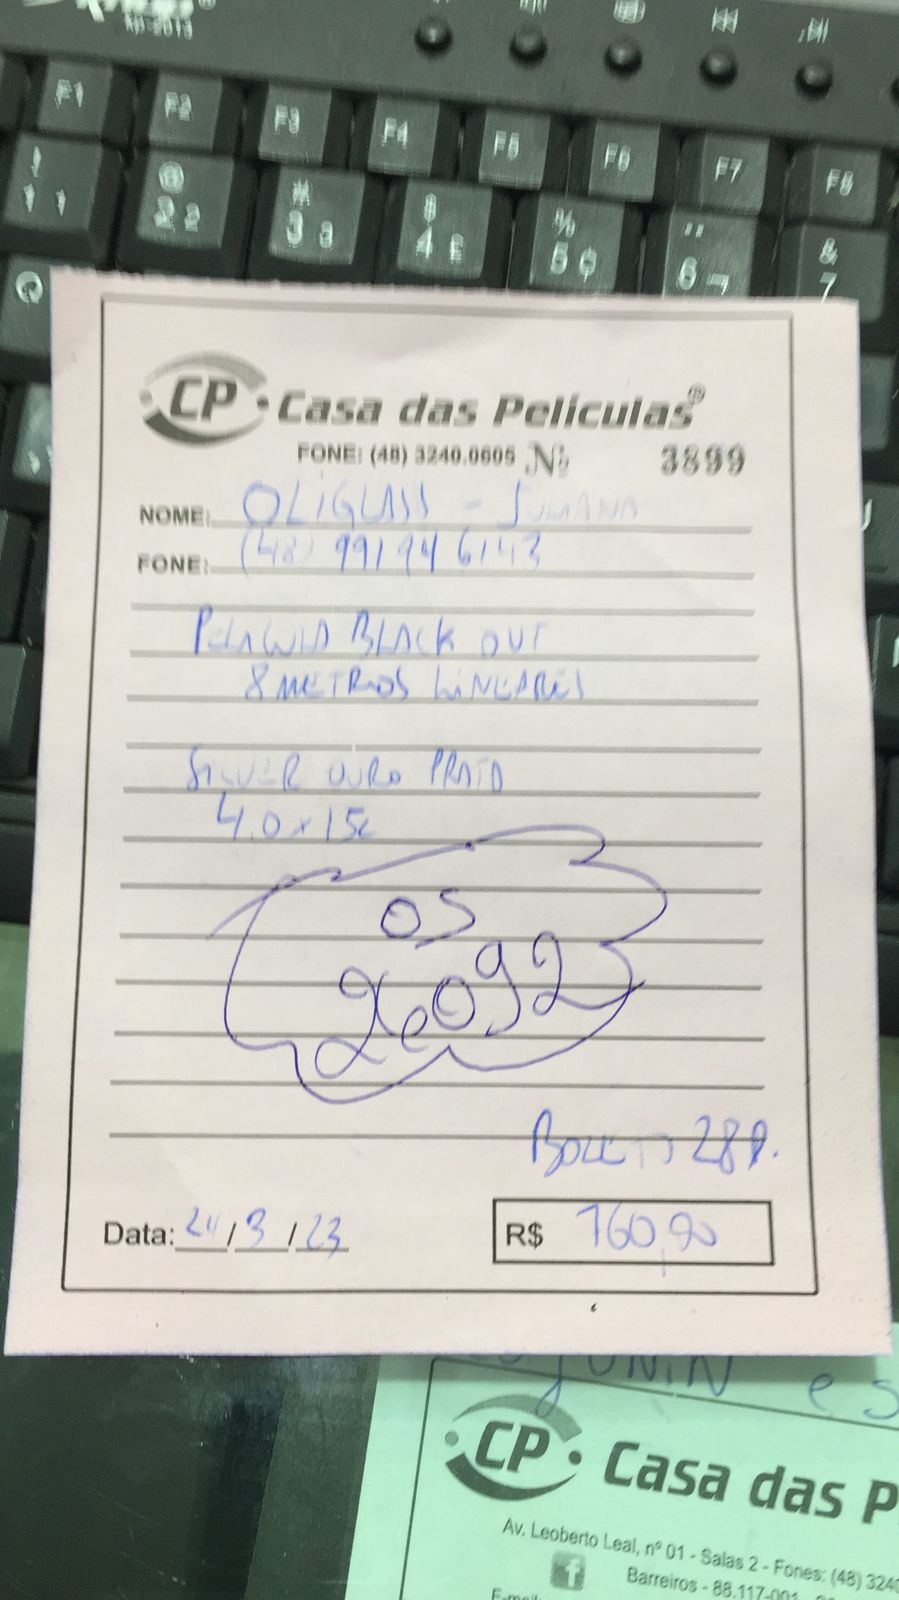 F1 F2 F3 F4 F5 F6 F7 F8
CP Casa das Películas®
FONE: (48) 3240.0605 Nº 3899
NOME: OLIGLASS - JUMANA
FONE: (48) 99194 6143
BLACK OUT
8 METROS LINEARES
SILVER OURO PRATA
4.0 x 152
OS
26092
BOLETO 28D.
Data: 24/3/23 R$ 760,90
CP Casa das P
Av. Leoberto Leal, nº 01 - Salas 2 - Fones: (48) 324
Barreiros - 88.117-001